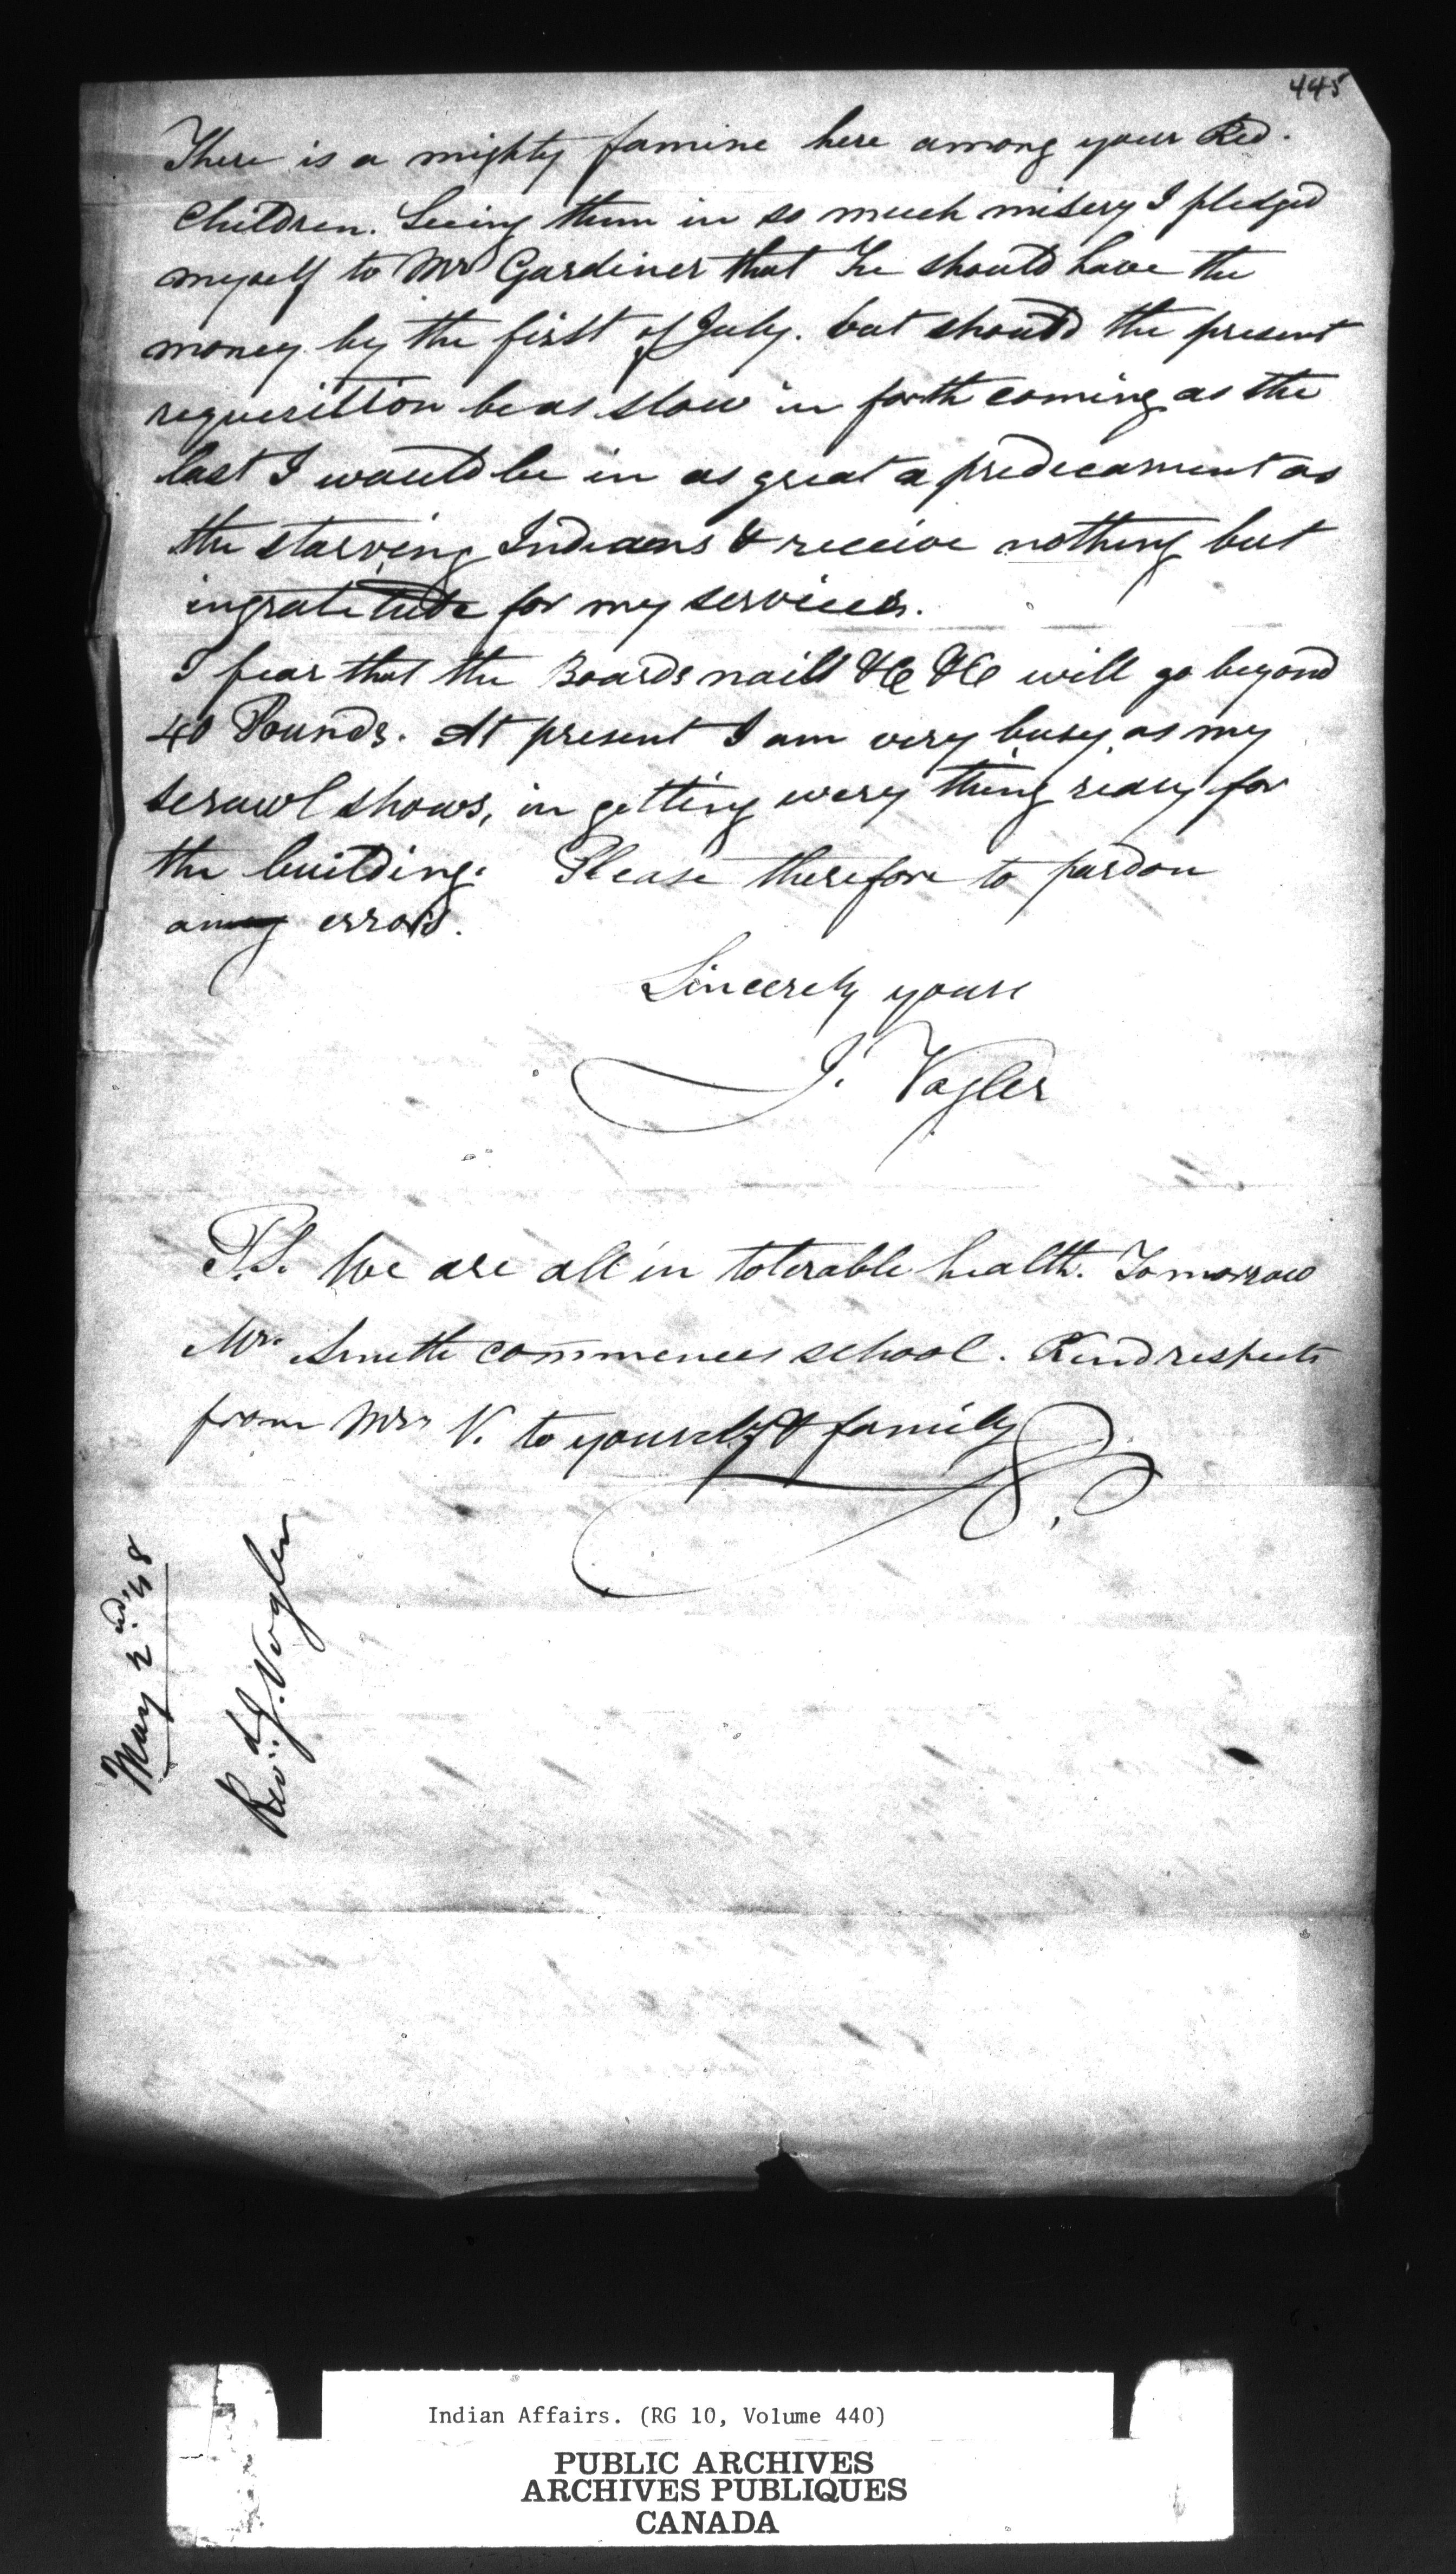 445
There is a mighty famine here among your Red.
Children. Seeing them in so much misery I pledged
myself to Mr Gardiner that he should have the
money by the first of July. but should the present
requesition be as slow in forthcoming as the
last I would be in as great a predecament as
the starving Indians & receive nothing but
ingratitude for my services.
I fear that the Boards nails &c &c will go beyond
40 Pounds. At present I am very busy as my
scrawl shows, in getting every thing ready for
the building. Please therefore to pardon
any errors.
Sincerely yours
J. Vogler
P.S. We are all in tolerable health. Tomorrow
Mr. Smith commences school. Kind respects
from Mrs V. to yourself & family
May 2nd '48
Revd J. Vogler
Indian Affairs. (RG 10, Volume 440)
PUBLIC ARCHIVES
ARCHIVES PUBLIQUES
CANADA